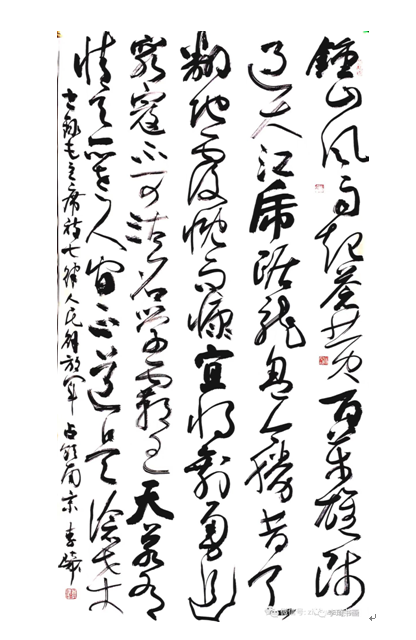 鐘山风雨起苍黄百万雄师
过大江虎踞龙盘今胜昔天
翻地覆慨而慷宜将剩勇追
穷寇不可沽名学霸王天若有
情天亦老人间正道是沧桑
录毛主席诗七律人民解放军占领南京 李